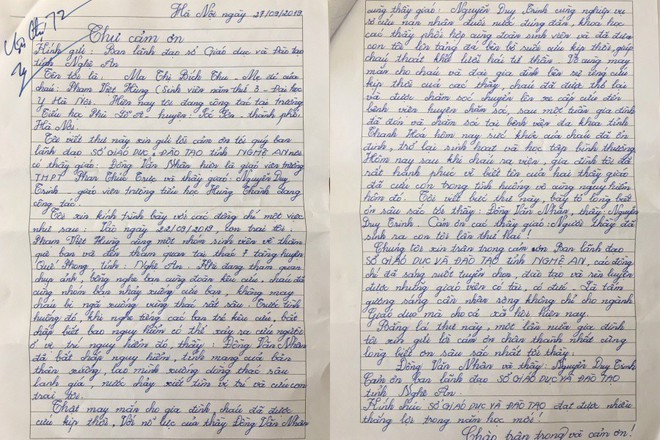 Hà Nội ngày 27/09/2019
Thư cảm ơn
Kính gửi: Ban lãnh đạo sở Giáo dục và Đào tạo
tỉnh Nghệ An
Tên tôi là: Ma Thị Bích Thu. Mẹ đẻ của
cháu: Phạm Việt Hưng (Sinh viên năm thứ 3 - Đại học
Y Hà Nội. Hiện nay tôi đang công tác tại trường
Tiểu học Phù Lỗ A - huyện Sóc Sơn - thành phố
Hà Nội.
Tôi viết thư này xin gửi lời cảm ơn tới quý ban
lãnh đạo SỞ GIÁO DỤC, ĐÀO TẠO tỉnh NGHỆ AN nơi
có thầy giáo: Đồng Văn Nhân hiện là giáo viên trường
THPT Phan Thúc Trực và thầy giáo: Nguyễn Duy
Trinh - giáo viên trường tiểu học Hưng Thành đang
công tác.
Tôi xin kính trình bày với các đồng chí một việc
như sau: Vào ngày 22/09/2019, con trai tôi:
Phạm Việt Hưng cùng một nhóm sinh viên về thăm
quê bạn và đến tham quan tại thác 7 tầng huyện
Quế Phong tỉnh Nghệ An. Khi đang tham quan
chụp ảnh, bỗng nghe bạn cùng đoàn kêu cứu, cháu đã
cùng nhóm bạn nhảy xuống cứu bạn, không may
cháu bị ngã xuống vũng thác rất sâu. Trước tình
huống đó, khi nghe tiếng cao bạn trẻ kêu cứu, bất
chấp bất bao nguy hiểm có thể xảy ra cứu người
ở vị trí nguy hiểm đó, thầy: Đồng Văn Nhân
đã bất chấp nguy hiểm, tính mạng của bản
thân xuống, lao mình xuống dòng thác sâu
lạnh giá, nước chảy xiết tìm vị trí và cứu con
trai tôi.
Thật may mắn cho gia đình, cháu đã được
cứu kịp thời. Với nỗ lực của thầy Đồng Văn Nhân
cùng thầy giáo: Nguyễn Duy Trinh cùng nghiệp vụ
sơ cứu nạn nhân đuối nước đúng đắn, khoa học
các thầy phối hợp cùng đoàn sinh viên và đã đưa
con tôi lên tảng đá bên bờ suối cứu kịp thời, giúp
cháu thoát khỏi lưỡi hái tử thần. Vô cùng may
mắn cho cháu và đại gia đình bên sự ứng cứu
kịp thời của các thầy, cháu đã được thở lại
và được chăm sóc chuyển lên xe cấp cứu đến
bệnh viện huyện chăm sóc, sau một tuần gia đình
đã đón và chăm sóc tại bệnh viện đa khoa tỉnh
Thanh Hoá hôm nay sức khỏe của cháu đã ổn
định, trở lại sinh hoạt và học tập bình thường.
Hôm nay sau khi cháu ra viện, gia đình tôi đã
rất hạnh phúc và biết ơn của hai thầy giáo
đã cứu con trong tình huống vô cùng nguy hiểm
hôm đó. Tôi viết bức thư này, bày tỏ lòng biết
ơn sâu sắc tới thầy: Đồng Văn Nhân, thầy: Nguyễn
Duy Trinh. Cảm ơn các thầy giáo: Người thầy đã
sinh ra con tôi lần thứ Hai!
Chúng tôi xin trân trọng cảm ơn Ban lãnh đạo
SỞ GIÁO DỤC VÀ ĐÀO TẠO tỉnh NGHỆ AN, các đồng
chí đã sáng suốt tuyển chọn, đào tạo và rèn luyện
được những giáo viên có tài, có đức. Là tấm
gương sáng cần nhân rộng không chỉ cho ngành
Giáo dục mà cho cả xã hội hiện nay.
Bằng lá thư này, một lần nữa gia đình
tôi xin gửi lời cảm ơn chân thành nhất cùng
lòng biết ơn sâu sắc nhất tới thầy:
Đồng Văn Nhân và thầy: Nguyễn Duy Trinh
Cảm ơn ban lãnh đạo SỞ GIÁO DỤC VÀ ĐÀO TẠO
tỉnh Nghệ An.
Kính chúc SỞ GIÁO DỤC VÀ ĐÀO TẠO đạt được nhiều
thắng lợi trong năm học mới!
Chào trân trọng và cảm ơn!